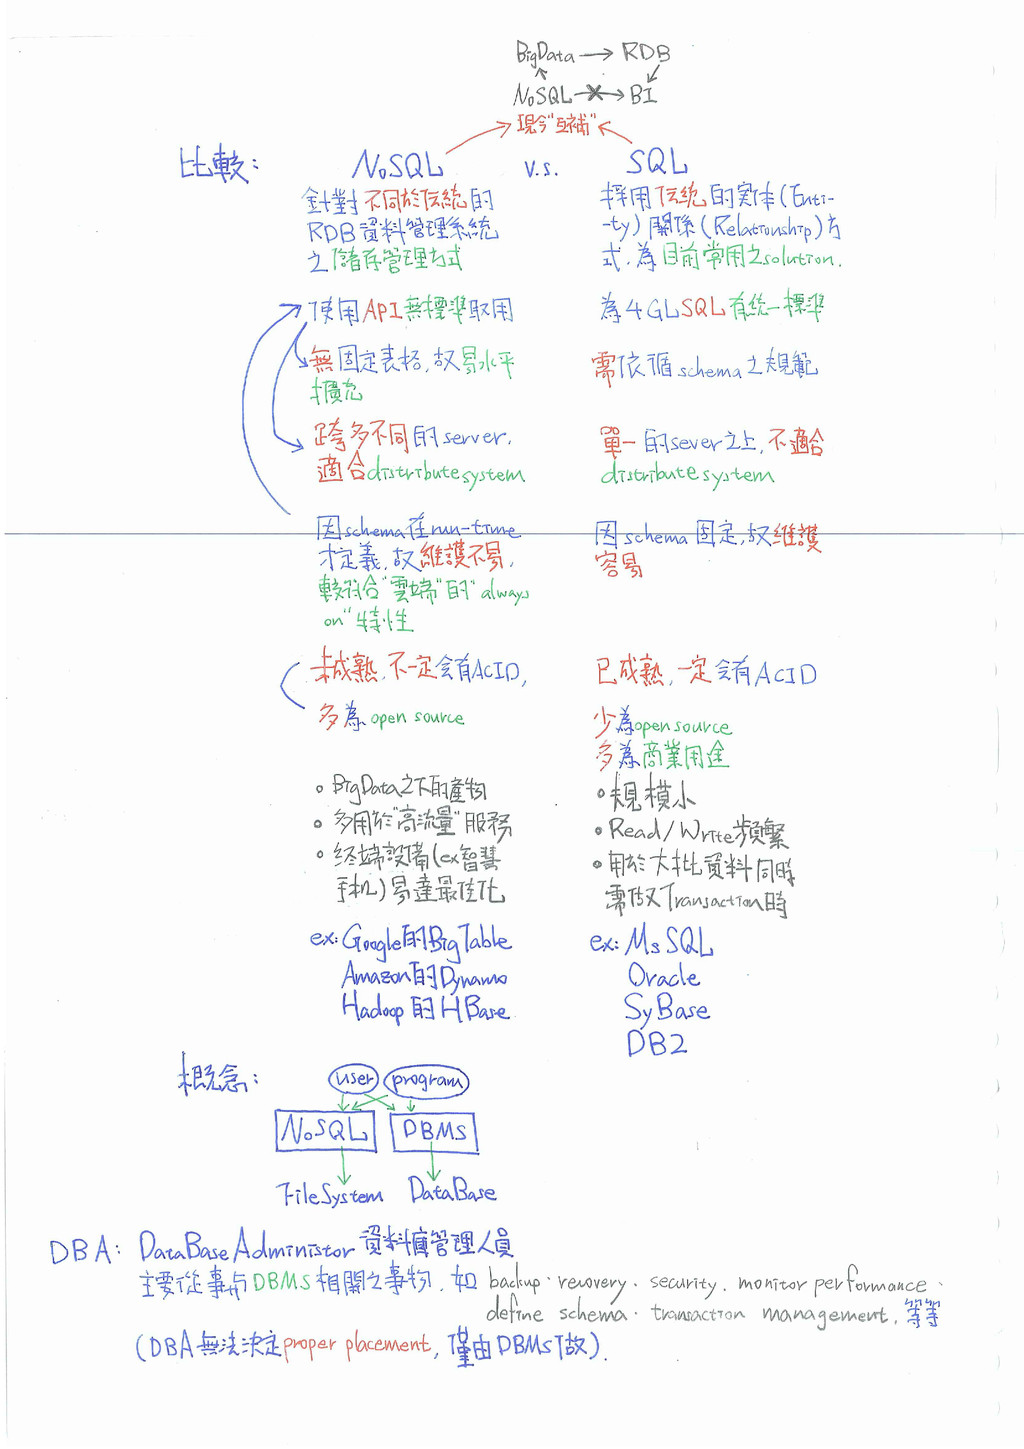 BigData → RDB
NoSQL → BI
現今"互補"
比較: NoSQL v.s. SQL
針對不同於伝統的
RDB資料管理系統
之儲存管理方式
採用伝統的実体(Enti-
-ty)關係(Relationship)方
式,為目前常用之solution.
使用API無標準取用
為4GLSQL有統一標準
無固定表格,故易水平
擴充
需依循schema之規範
跨多不同的server,
適合distribute system
單一的sever之上,不適合
distribute system
因schema在run-time
才定義,故維護不易,
較符合"雲端"的"always
on"特性
因schema固定,故維護
容易
未成熟,不一定会有ACID,
多為open source
已成熟,一定会有ACID
少為open source
多為商業用途
BigData之下的產物
多用於"高流量"服務
終端設備(ex智慧
手机)易達最佳化
規模小
Read/Write頻繁
用於大批資料同時
需做Transaction時
ex: Google的BigTable
Amazon的Dynamo
Hadoop的HBase
ex: MsSQL
Oracle
SyBase
DB2
概念:
user program
NoSQL DBMS
FileSystem DataBase
DBA: DataBase Administor 資料庫管理人員
主要從事与DBMS相關之事物,如 backup、recovery、security、monitor performance、
define schema、transaction management,等等
(DBA無法決定proper placement,僅由DBMS做).